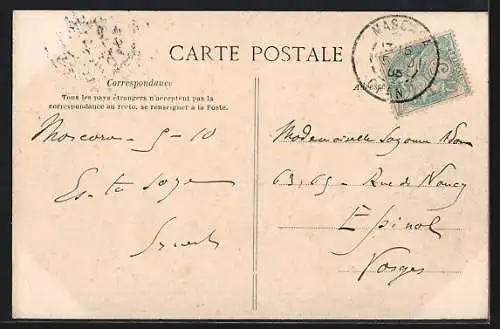 CARTE POSTALE
Correspondance
Tous les pays étrangers n'acceptent pas la
correspondance au recto, se renseigner à la Poste.
MASCARA
Mascara 9-10
Es-tu sage
Mademoiselle
63, 65 - Rue de Nancy
Epinal
Vosges